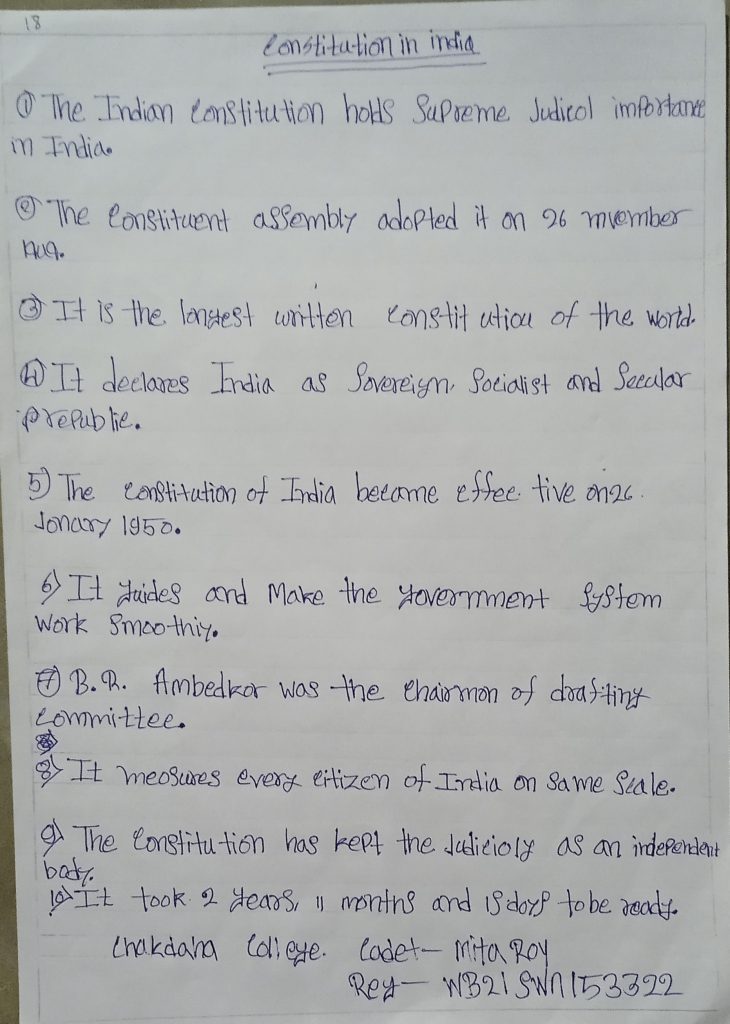 18
Constitution in india
① The Indian Constitution holds Supreme Judicol importance
in India.
② The Constituent assembly adopted it on 26 nvember
③ It is the longest written constitution of the world.
④ It declares India as Sovereign, Socialist and Secular
prepublic.
5) The constitution of India become effec tive on 26
Jonary 1950.
6) It guides and Make the government System
work Smoothiy.
⑦ B.R. Ambedkor was the Chairmon of drafting
committee.
8) It meosures every citizen of India on same Scale.
9) The Constitution has kept the Judicioly as an independent
body.
10) It took 2 years, 11 months and 18 doys to be ready.
Chakdaha College. Cadet- Mita Roy
Reg- WB21SWN153322